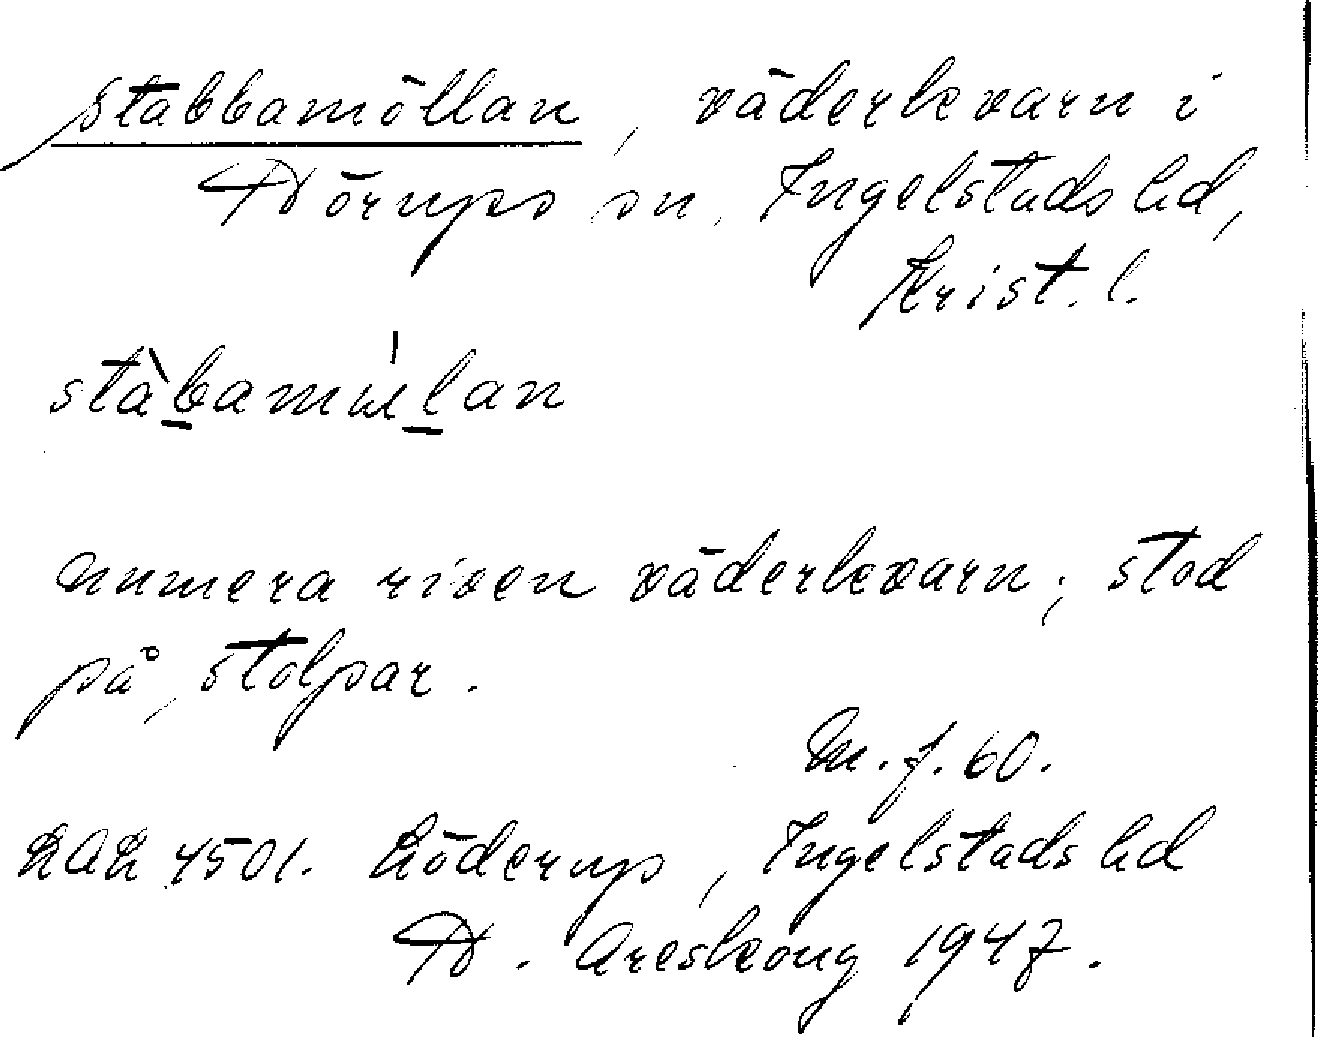 stabbamöllan, väderkvarn i
Hörups sn, Ingelstads hd,
Krist. l.
stàbamu̇́lan
numera riven väderkvarn; stod
på stolpar.
M. f. 60.
LAL 4501. Löderup, Ingelstads hd
H. Areskoug 1947.